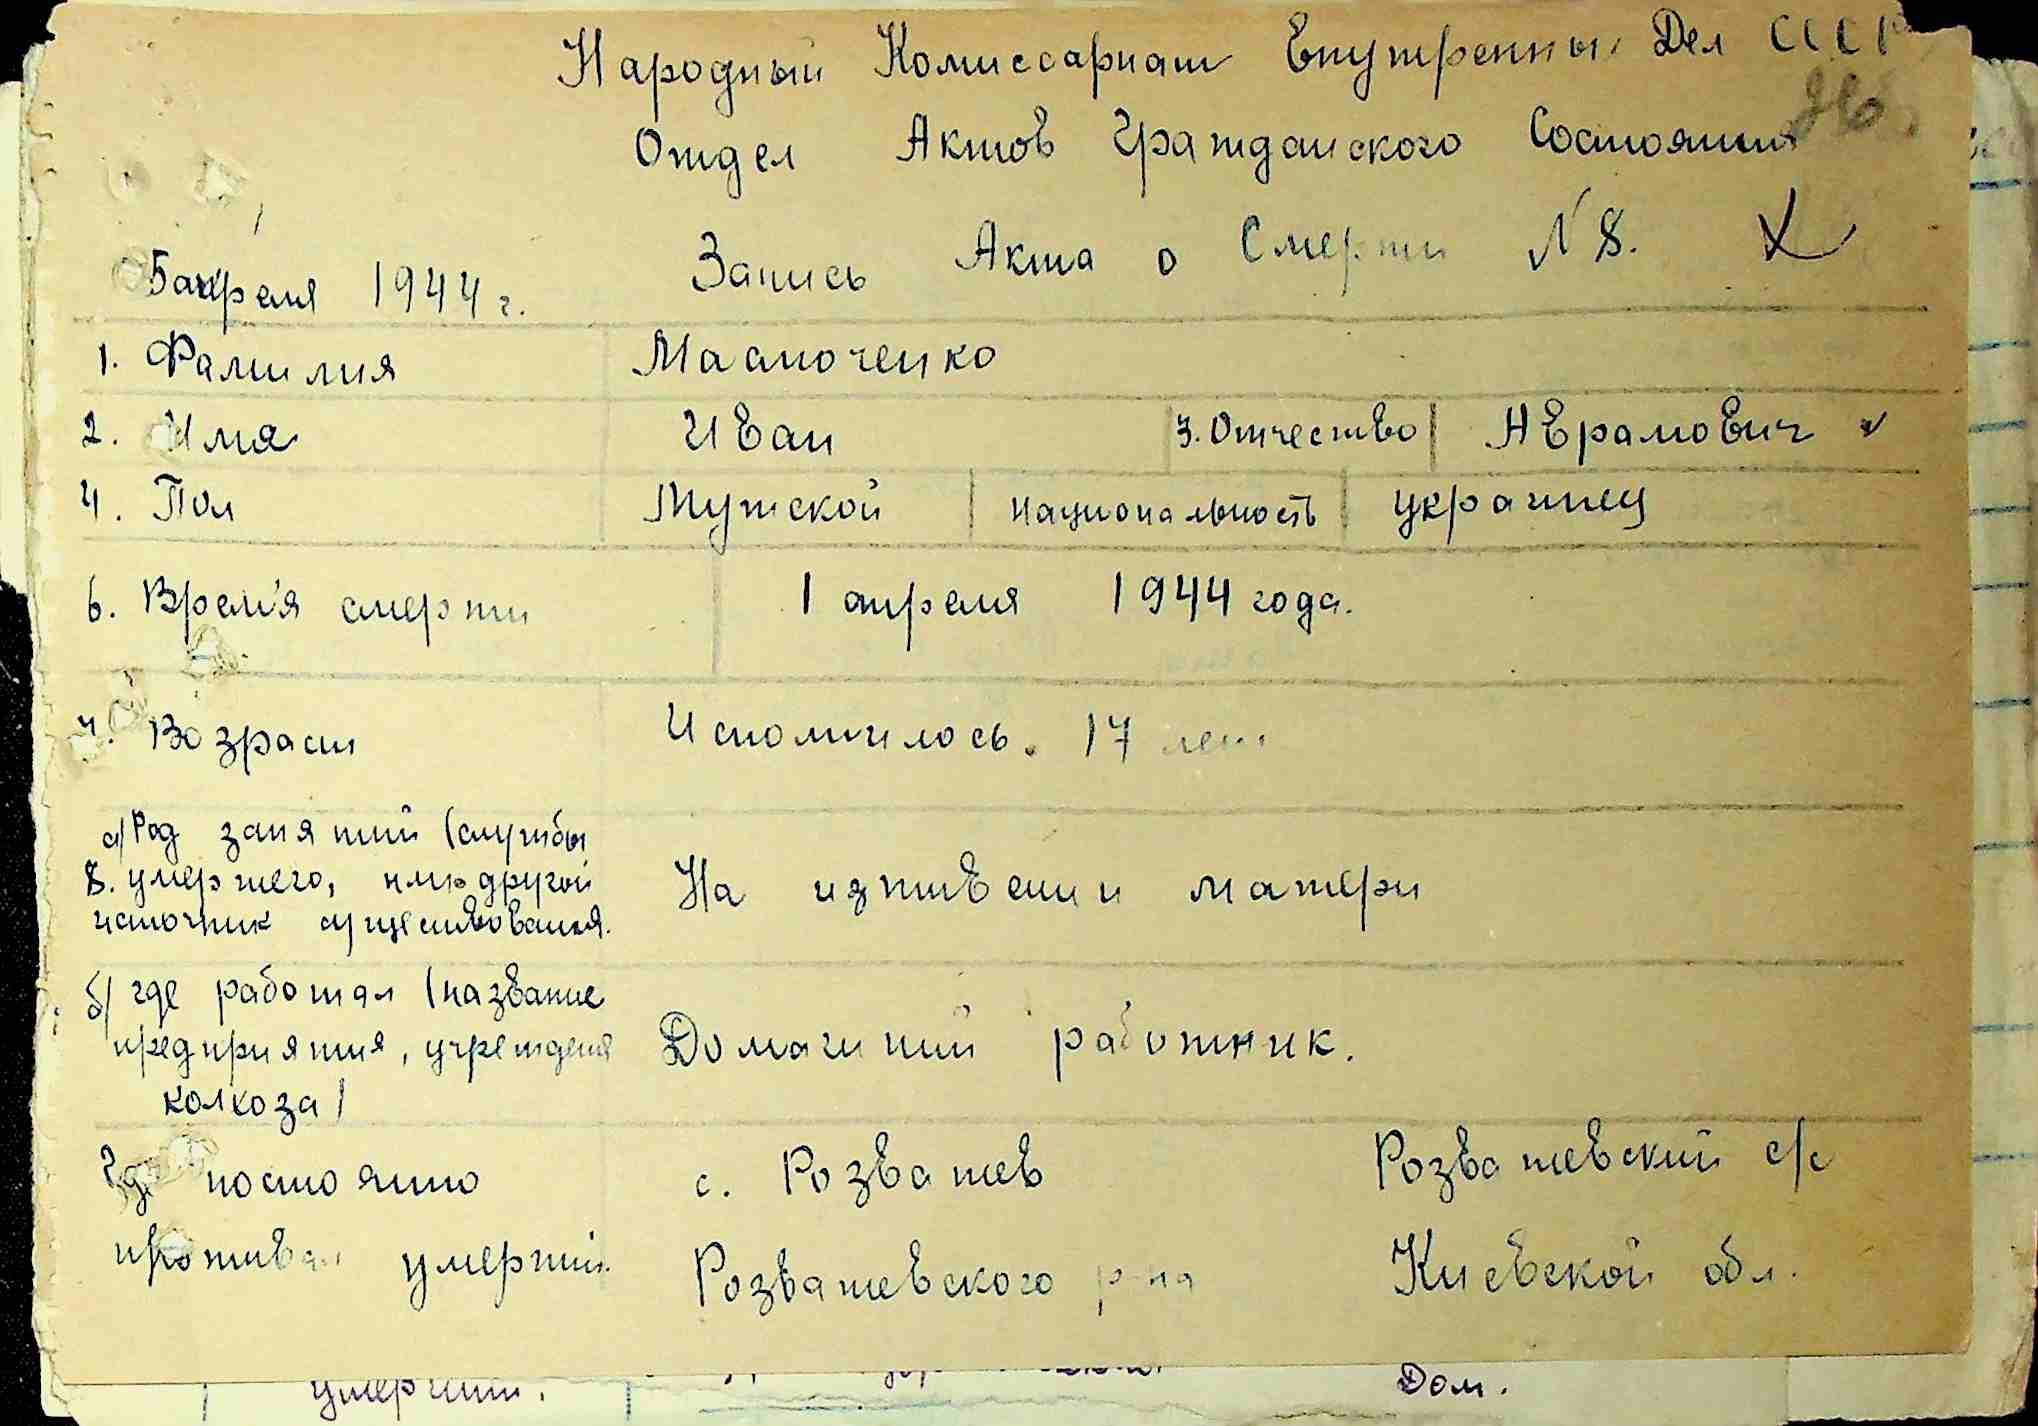 Народный Комиссариат Внутренных Дел СССР
Отдел Актов Гражданского Состояния
5 апреля 1944 г. Запись Акта о Смерти N 8.
1. Фамилия Масюченко
2. Имя Иван 3. Отчество Аврамович
4. Пол Мужской национальность украинец
6. Время смерти 1 апреля 1944 года.
7. Возраст Исполнилось. 17 лет
а/ Род занятий (службы
8. умершего, или другой На иждивении матери
источник существования.
б/ где работал (название
предприятия, учреждения Домашний работник.
колхоза)
Где постоянно с. Розважев Розважевский с/с
проживал умерший. Розважевского р-на Киевской обл.
умерший. Дом.